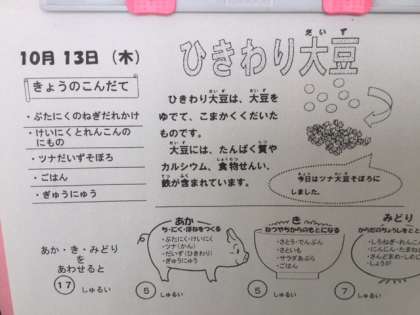 10月 13日 (木)
ひきわり大豆
だいず
きょうのこんだて
・ぶたにくのねぎだれかけ
・けいにくとれんこんの
にもの
・ツナだいずそぼろ
・ごはん
・ぎゅうにゅう
ひきわり大豆は、大豆を
ゆでて、こまかくくだいた
ものです。
大豆には、たんぱく質や
カルシウム、食物せんい、
鉄が含まれています。
今日はツナ大豆そぼろに
しました。
あか・き・みどり
を
あわせると
17 しゅるい
あか
ち・にく・ほねをつくる
・ぶたにく・けいにく
・ツナ(かん)
・だいず(ひきわり)
・ぎゅうにゅう
5 しゅるい
き
ねつやちからのもとになる
・さとう・でんぷん
・さといも
・サラダあぶら
・ごはん
5 しゅるい
みどり
からだのちょうしをとと
・しろねぎ・れんこん
・にんじん・たまね
・さんどまめ・しめじ
・しょうが
7 しゅるい